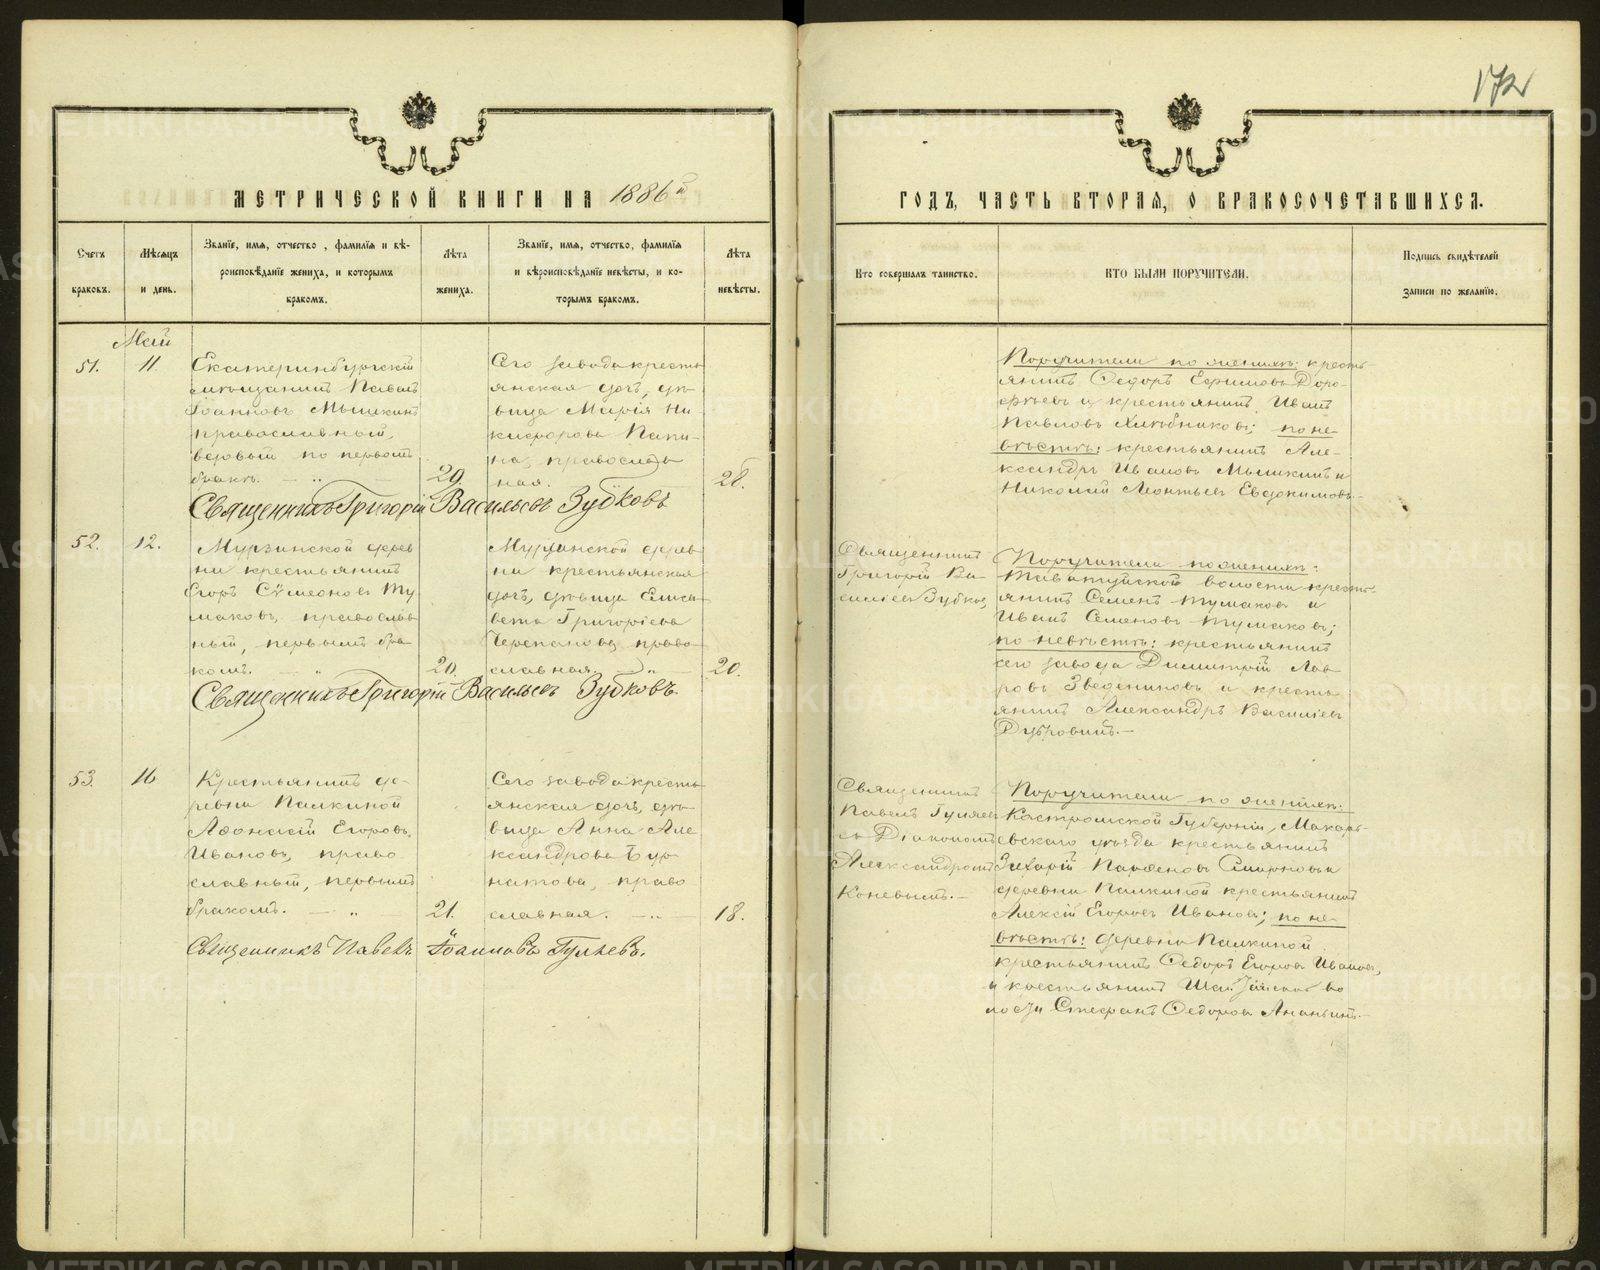 172
МЕТРИЧЕСКОЙ КНИГИ НА 1886й
ГОДЪ, ЧАСТЬ ВТОРАЯ, О БРАКОСОЧЕТАВШИХСЯ.
Счетъ браковъ.
Мѣсяцъ и день.
Званїе, имя, отчество, фамилїя и вѣ-
роисповѣданїе жениха, и которымъ
бракомъ.
Лѣта
жениха.
Званїе, имя, отчество, фамилїя
и вѣроисповѣданїе невѣсты, и ко-
торымъ бракомъ.
Лѣта
невѣсты.
Кто совершалъ таинство.
КТО БЫЛИ ПОРУЧИТЕЛИ.
Подпись свидѣтелей
записи по желанїю.
Май
51.
11.
Екатеринбургскій
мѣщанинъ Павелъ
Іоанновъ Мышкинъ
православный,
вдовый по первомъ
бракѣ.
29.
Сего завода кресть
янская дочь, дѣ-
вица Марія Ни
кифорова Папи-
на, православ
ная.
28.
Поручители по женихѣ: кресть
янинъ Ѳедоръ Ефимовъ Доро-
фѣевъ и крестьянинъ Иванъ
Павловъ Хлѣбниковъ; по не-
вѣстѣ: крестьянинъ Але-
ксандръ Ивановъ Мышкинъ и
Николай Леонтьевъ Евдокимовъ.
Священникъ Григорій Васильевъ Зубковъ
52.
12.
Мурзинской дерев
ни крестьянинъ
Егоръ Сѵмеоновъ Ту
маковъ, православ
ный, первымъ бра
комъ.
20.
Мурзинской дерев
ни крестьянская
дочь, дѣвица Елиса
вета Григоріева
Черепанова, право
славная.
20.
Священникъ
Григорій Ва-
силіевъ Зубковъ
Поручители по женихѣ:
Таватуйской волости кресть-
янинъ Семенъ Тумаковъ и
Иванъ Семеновъ Тумаковъ;
по невѣстѣ: крестьянинъ
сего завода Димитрій Лав
ровъ Звездниковъ и кресть
янинъ Александръ Василіевъ
Дубровинъ.
Священникъ Григорій Васильевъ Зубковъ.
53.
16
Крестьянинъ де-
ревни Палкиной
Аѳонасій Егоровъ
Ивановъ, право
славный, первымъ
бракомъ.
21.
Сего завода кресть
янская дочь, дѣ-
вица Анна Але
ксандрова Бур
натова, право
славная.
18.
Священникъ
Павелъ Гуляевъ
съ Діакономъ
Александромъ
Коневымъ.
Поручители по женихѣ:
Костромской Губерніи, Макарь-
евскаго уѣзда крестьянинъ
Захарій Парѳеновъ Смирновъ и
деревни Палкиной крестьянинъ
Алексій Егоровъ Ивановъ; по не-
вѣстѣ: деревни Палкиной
крестьянинъ Ѳедоръ Егоровъ Ивановъ,
и крестьянинъ во
лости Стефанъ Ѳедоровъ Ананьинъ.
Священникъ Павелъ Іоанновъ Гуляевъ.
METRIKI.GASO-URAL.RU